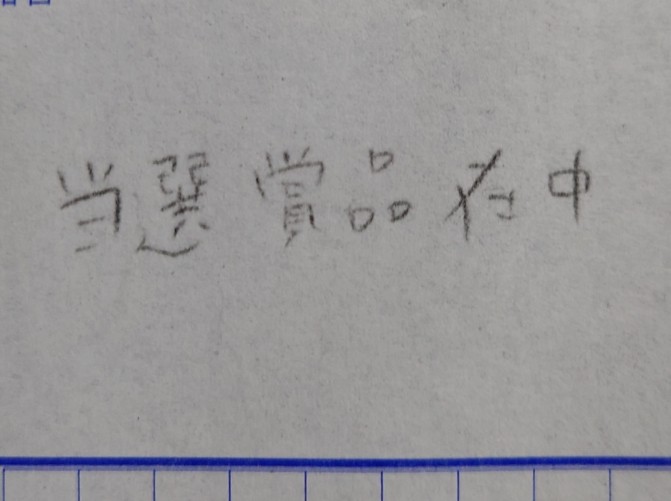 当選賞品在中